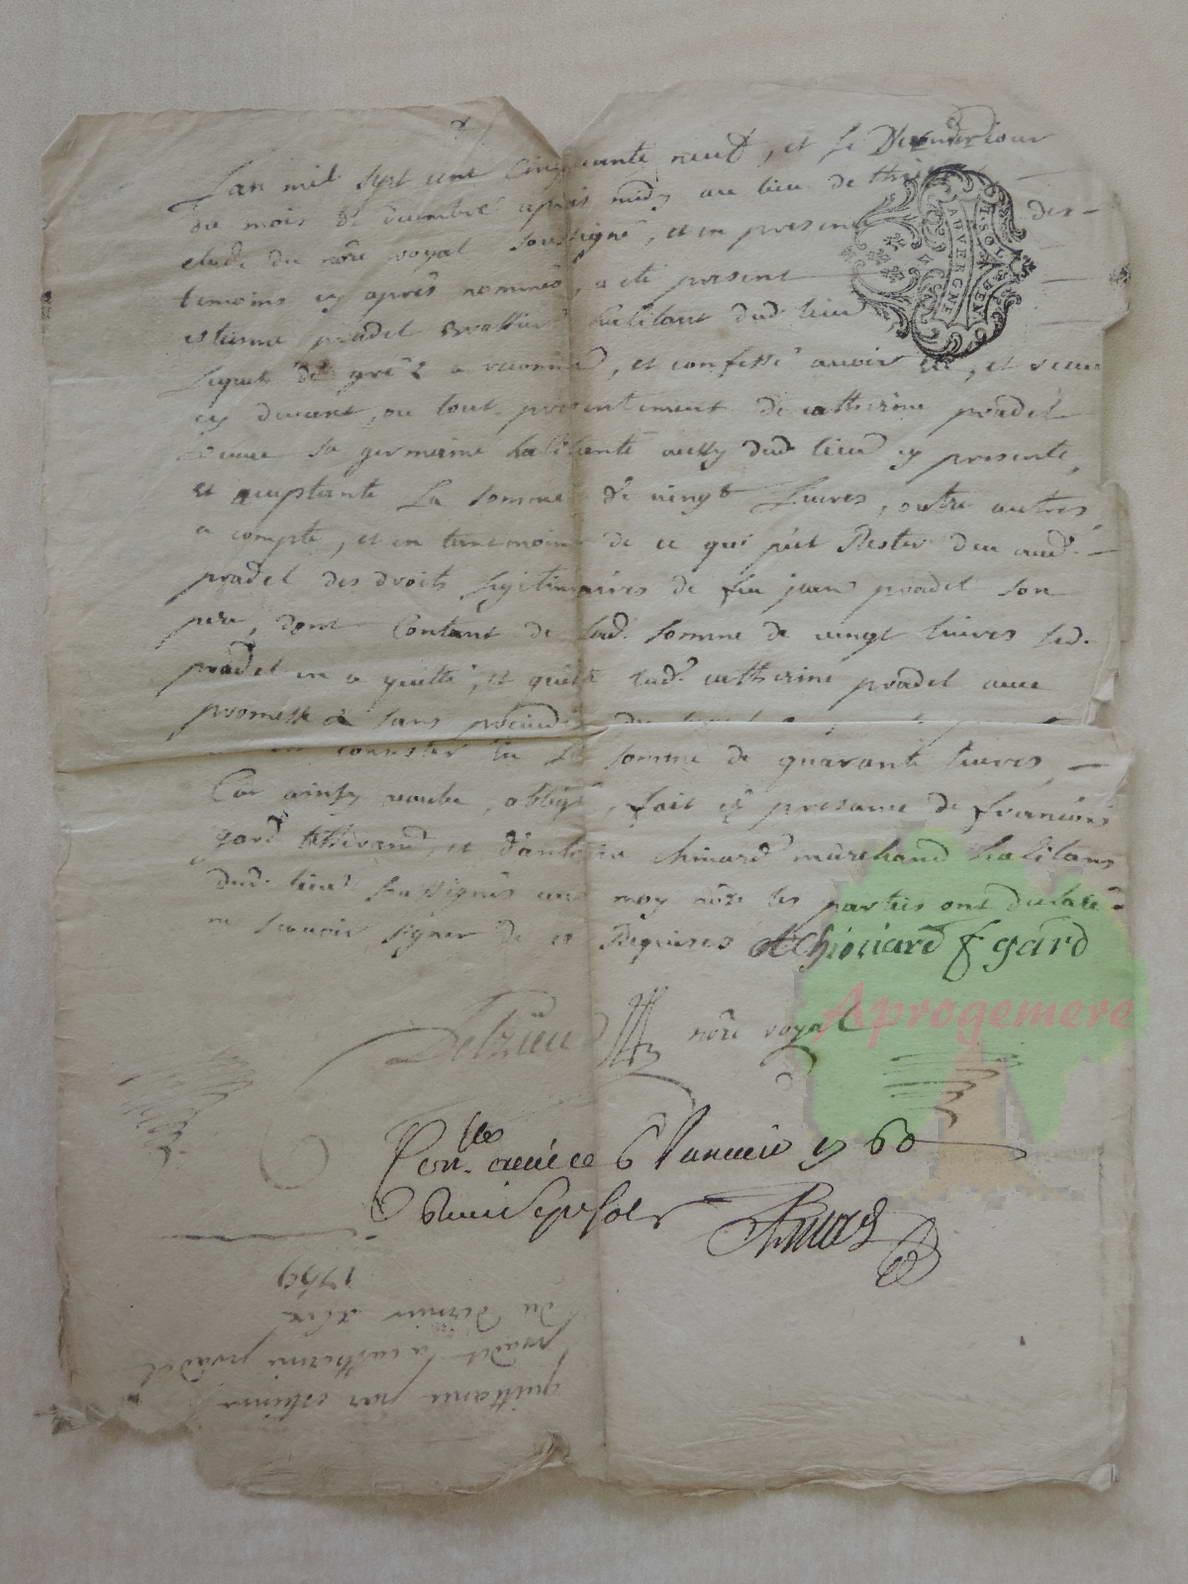 Lan mil sept cent cinquante neuf, et le Dernier Jour
du mois de decembre apres midy au lieu de
etude du nore royal soussigné, et en presence des
temoins cy apres nommés, a eté present
estienne pradel habitant dud. lieu
lequel de gré a reconnu, et confessé avoir eu, et recu
cy devant, ou tout presentement de catherine pradel
sa germaine habitante aussy dud. lieu cy presente,
et acceptante La somme de vingt Livres, outre autres
a compte, et en tant moins de ce qui peut Rester deu aud.
pradel des droits legitimaires de feu jean pradel son
pere, dont Contant de lad. somme de vingt livres led.
pradel en a quitté, et quitte lad. catherine pradel avec
promesse sans
somme de quarante livres
Car ainsy obligé, fait en presance de francois
gard tisserand, et d'antoine chouard marchand habitans
dud. lieu soussignés avec moy nore les parties ont declaré
ne scavoir signer de ce Requises AChouard f gard
nore royal
Con.lée a ce 6 Janvier 1760
Recu sept sols
quittance par estienne
pradel a catherine pradel
du dernier xbre
1759
T. SOLS 4 DEN
AUVERGNE
Aprogemere